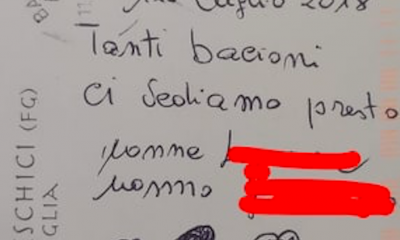 Luglio 2018
Tanti bacioni
ci vediamo presto
nonne
nonno
SCHICI (FG)
GLIA